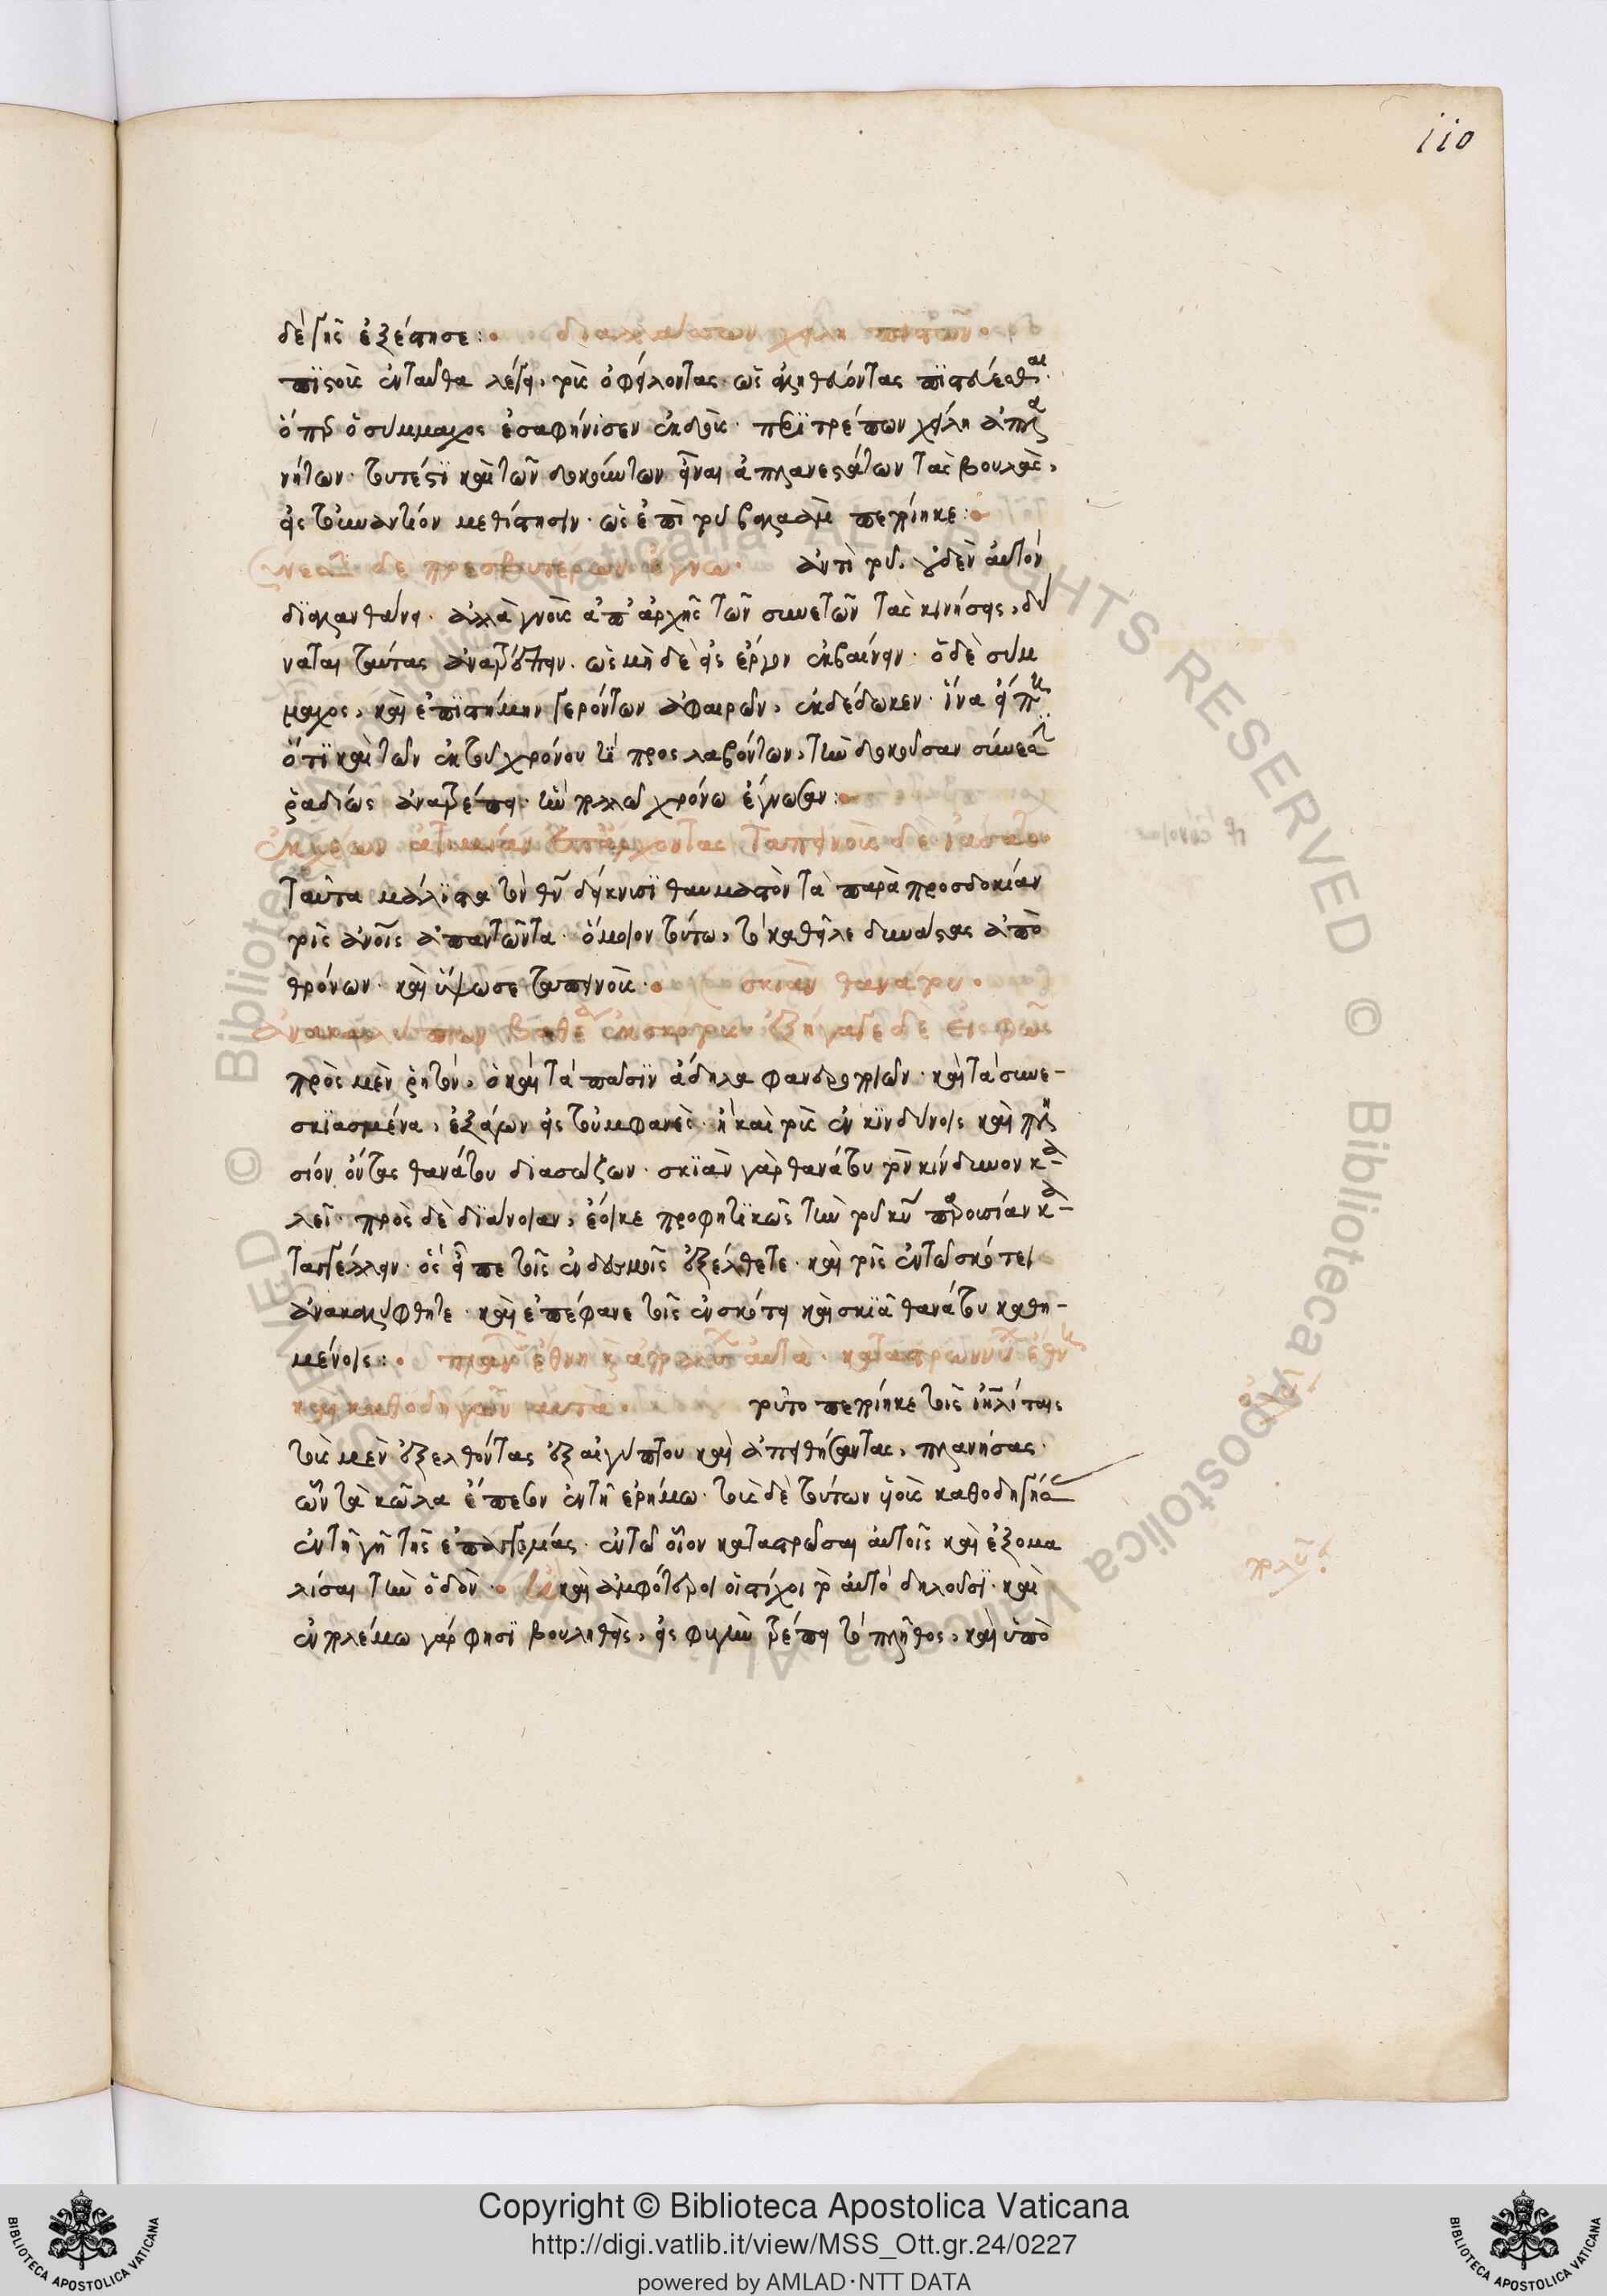 110
δὲ γῆς ἐξέστησε: διαλλάσσων χείλη πιστῶν.
πιστοὺς ἐνταῦθα λέγει, τοὺς ὀφείλοντας ὡς ἀληθεύοντας πιστεύεσθαι.
ὅπερ ὁ σύμμαχος ἐσαφήνισεν ἐκδοὺς. περιτρέπων χείλη ἀπλα
νήτων. τουτέστι καὶ τῶν δοκούντων εἶναι ἀπλανεστάτων τὰς βουλὰς,
εἰς τοὐναντίον μεθίστησιν. ὡς ἐπὶ τοῦ βαλαὰμ πεποίηκε:
σύνεσιν δὲ πρεσβυτέρων ἔγνω. ἀντὶ τοῦ, οὐδὲν αὐτὸν
διαλανθάνει. ἀλλὰ γνοὺς ἀπ' ἀρχῆς τῶν συνετῶν τὰς κινήσεις, δύ
ναται ταύτας ἀνατρέπειν. ὡς μὴ δὲ εἰς ἔργον ἐκβαίνειν. ὁ δὲ σύμ
μαχος, καὶ ἐπιστήμην γερόντων ἀφαιρῶν, ἐκδέδωκεν. ἵνα εἴπῃ
ὅτι καὶ τῶν ἐκ τοῦ χρόνου τί προσλαβόντων, τὴν δοκοῦσαν σύνεσιν
ῥαδίως ἀνατρέπει. τῷ πολλῷ χρόνω ἔγνωσαν:
ἐκχέων ἀτιμίαν ἐπ' ἄρχοντας, ταπεινοὺς δὲ ἰάσατο
ταῦτα μάλιστα τὸν θν δείκνυσι θαυμαστὸν τὰ παρὰ προσδοκίαν
τοῖς ἀνοις ἀπαντῶντα. ὅμοιον τούτω, τὸ καθεῖλε δυνάστας ἀπὸ
θρόνων. καὶ ὕψωσε ταπεινοὺς. σκιὰν θανάτου.
ἀνακαλύπτων βαθέα ἐκ σκότους. ἐξήγαγε δὲ εἰς φῶς
πρὸς μὲν ῥητὸν, ὁ καὶ τὰ πᾶσιν ἄδηλα φανερὰ ποιῶν. καὶ τὰ συνε-
σκιασμένα, ἐξάγων εἰς τοὐμφανὲς. ἢ καὶ τοὺς ἐν κινδύνοις καὶ πλη
σίον ὄντας θανάτου διασώζων. σκιὰν γὰρ θανάτου τὸν κίνδυνον κα-
λεῖ. πρὸς δὲ διάνοιαν, ἔοικε προφητικῶς τὴν τοῦ κυ παρουσίαν κα-
ταγγέλλειν. ὃς εἶπε τοῖς ἐν δεσμοῖς ἐξέλθετε. καὶ τοῖς ἐν τῷ σκότει
ἀνακαλύφθητε. καὶ ἐπέφανε τοῖς ἐν σκότει καὶ σκιᾷ θανάτου καθη-
μένοις: πλανῶν ἔθνη καὶ ἀπολλύων αὐτὰ. καταστρωννύων ἔθνη
καὶ καθοδηγῶν αὐτὰ. τοῦτο πεποίηκε τοῖς ιηλίταις
τοὺς μὲν ἐξελθόντας ἐξ αἰγύπτου καὶ ἀπειθήσαντας, πλανήσας.
ὧν τὰ κῶλα ἔπεσον ἐν τῇ ἐρήμω. τοὺς δὲ τούτων υἱοὺς καθοδηγήσας
ἐν τῇ γῇ τῆς ἐπαγγελίας. ἐν τῷ οἷον καταστρῶσαι αὐτοῖς καὶ ἐξομα
λίσαι τὴν ὁδὸν. καὶ ἀμφότεροι οἱ στίχοι τὸ αὐτὸ δηλοῦσι. καὶ
ἐν πολέμω γάρ φησι βουληθεὶς, εἰς φυγὴν τρέπει τὸ πλῆθος, καὶ ὑπὸ
Copyright © Biblioteca Apostolica Vaticana
http://digi.vatlib.it/view/MSS_Ott.gr.24/0227
powered by AMLAD·NTT DATA
BIBLIOTECA APOSTOLICA VATICANA
BIBLIOTECA APOSTOLICA VATICANA